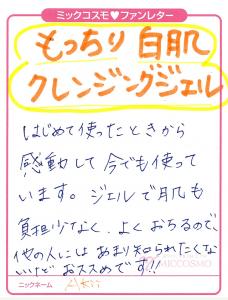 ミックコスモ♥ファンレター
もっちり 白肌
クレンジングジェル
はじめて使ったときから
感動して今でも使って
います。ジェルで肌も
負担少なく、よくおちるので、
他の人には あまり知られたくな
いけど おススメです!!
MICCOSMO
ニックネーム